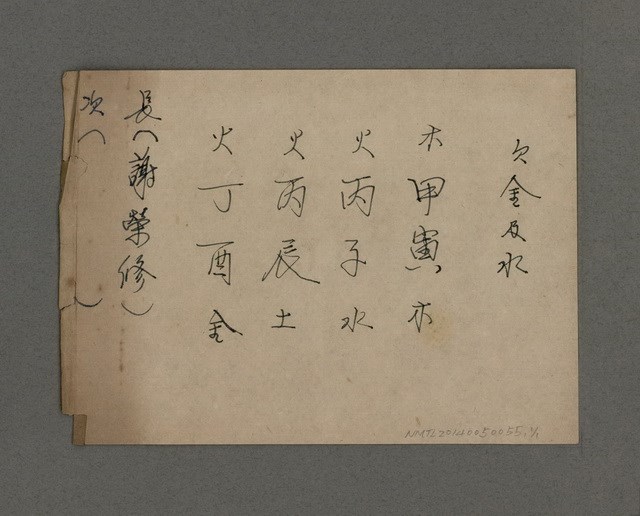 欠金及水
木甲寅木
火丙子水
火丙辰土
火丁酉金
長(謝榮修)
次( )
NMTL20140050055,1/1